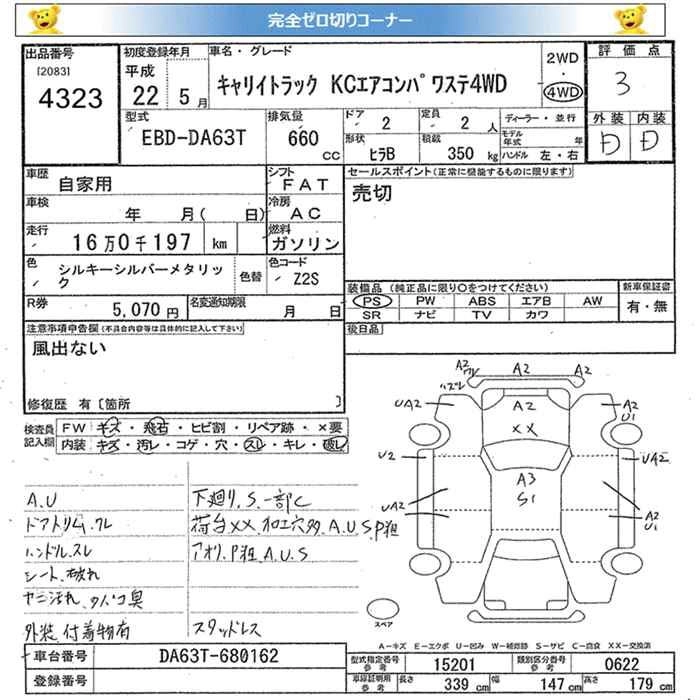 完全ゼロ切りコーナー
出品番号
[2083]
4323
初度登録年月
平成
22 5 月
車名・グレード
キャリイトラック KCエアコンパワステ4WD
2WD
・
4WD
評価点
3
外装 内装
D D
型式
EBD-DA63T
排気量
660
cc
ドア
2
定員
2 人
形状
ヒラB
積載
350 kg
ディーラー・並行
モデル年式 年
ハンドル 左・右
車歴
自家用
シフト
FAT
車検
年 月( 日)
冷房
AC
走行
16万0千197 km
燃料
ガソリン
色
シルキーシルバーメタリック
色替
色コード
Z2S
R券
5,070 円
名変通知期限
月 日
セールスポイント(正常に機能するものに限ります)
売切
装備品(純正品に限り○をつけてください)
PS PW ABS エアB AW
SR ナビ TV カワ
新車保証書
有・無
後日品
注意事項申告欄(不具合内容等は具体的に記入して下さい)
風出ない
修復歴 有〔箇所 〕
検査員記入欄
FW キズ・飛石・ヒビ割・リペア跡・×要
内装 キズ・汚レ・コゲ・穴・スレ・キレ・破レ
A.U
ドアトリム.ワレ
ハンドル.スレ
シート.破れ
ヤニ汚れ.タバコ臭
外装 付着物有
下廻り.S.一部C
荷台XX.加工穴多.A.U.S.P粗
アオリ.P粗.A.U.S
スタッドレス
A2
ワレ
ハズレ
A2
A2
UA2
A2
XX
A2
U1
U2
A3
S1
UA2
UA2
A2
U1
A2
スペア
A-キズ E-エクボ U-凹み W-補修跡 S-サビ C-腐食 XX-交換済
車台番号
DA63T-680162
登録番号
型式指定番号 参考
15201
類別区分番号 参考
0622
車検証明用 参考
長さ 339 cm 幅 147 cm 高さ 179 cm